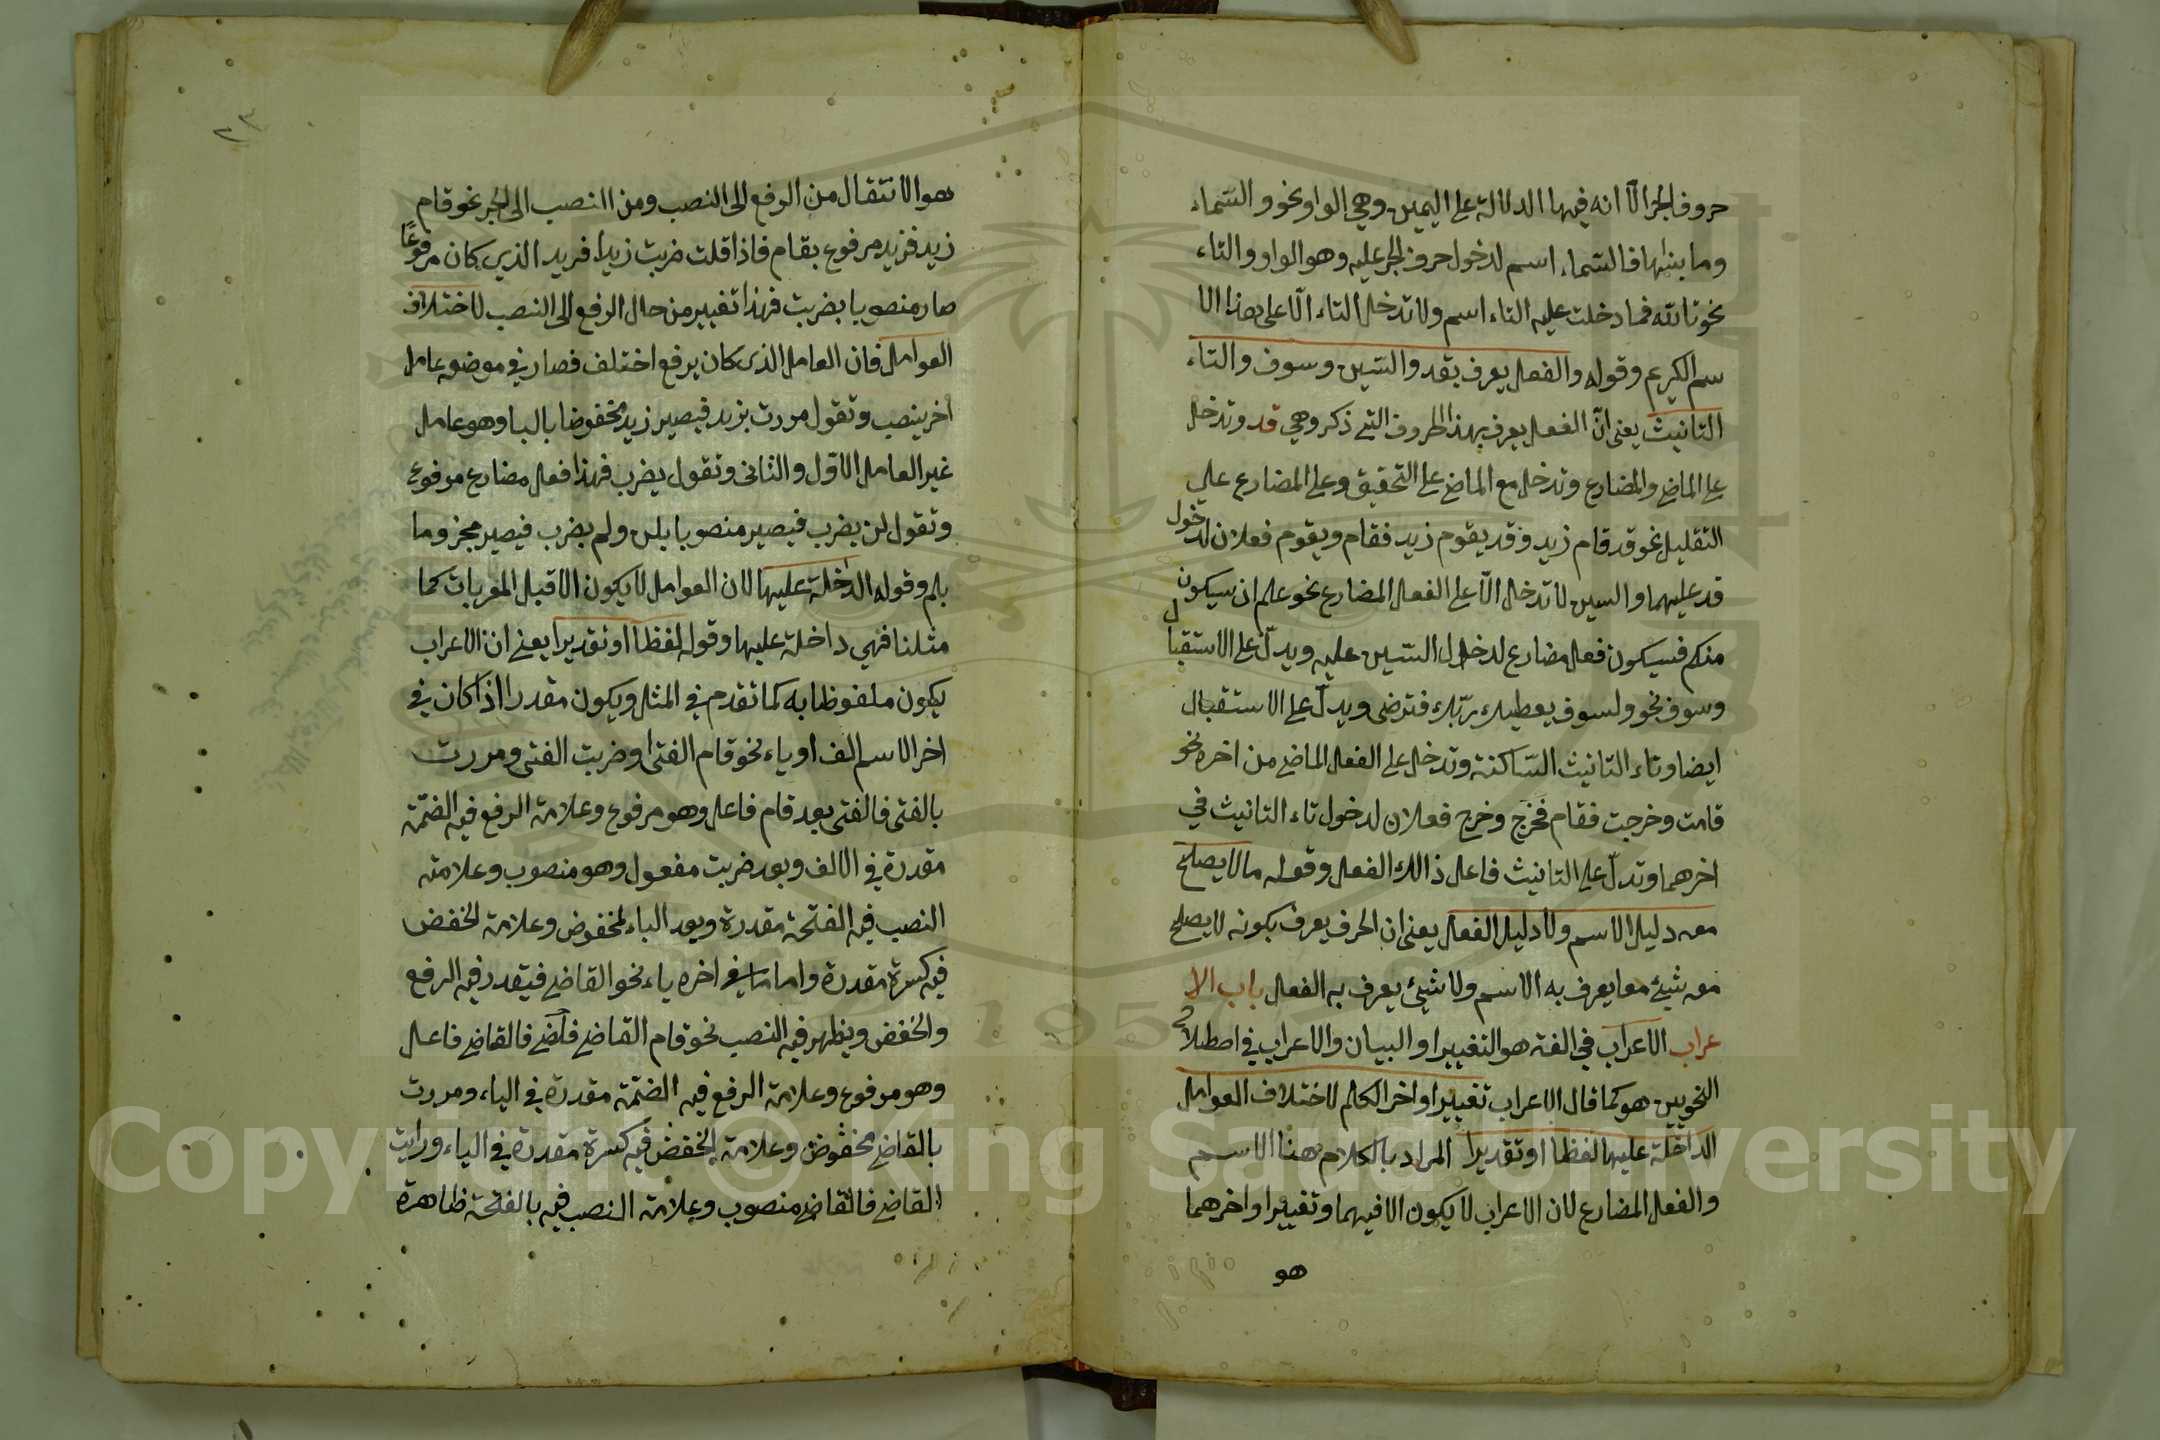 حروف الجر الا انه فيها الدلالة على اليمين وهي الواو نحو والسماء
وما بناها فالسماء اسم لدخول حروف الجر عليه وهو الواو والتاء
نحو تالله فما دخلت عليه التاء اسم ولا تدخل التاء الّا على هذا الا
سم الكريم وقوله والفعل يعرف بقد والسّين وسوف والتاء
التانيث يعني انّ الفعل يعرف بهذ الحروف التي ذكر وهي قد وتدخل
على الماضي والمضارع وتدخل مع الماضي على التحقيق وعلى المضارع على
التقليل نحو قد قام زيد وقد يقوم زيد فقام ويقوم فعلان لدخول
قد عليهما والسين لا تدخل الّا على الفعل المضارع نحو علم ان سيكون
منكم فسيكون فعل مضارع لدخول السّين عليه ويدلّ على الاستقبال
وسوف نحو ولسوف يعطيك ربّك فترضى ويدلّ على الاستقبال
ايضا وتاء التانيث السّاكنة وتدخل على الفعل الماضي من اخره نحو
قامت وخرجت فقام فخرج وخرج فعلان لدخول تاء التانيث في
اخرهما وتدلّ على التانيث فاعل ذالك الفعل وقوله ما لا يصلح
معه دليل الاسم ولا دليل الفعل يعنى ان الحرف يعرف بكونه لا يصلح
معه شيئ مما يعرف به الاسم ولا شيئ يعرف به الفعل باب الا
عراب الاعراب في الغة هو التغيير او البيان والاعراب في اصطلاح
النحويين هو كما قال الاعراب تغيير اواخر الكلم لاختلاف العوامل
الداخلة عليها لفظا او تقديرا المراد بالكلام هنا الاسم
والفعل المضارع لان الاعراب لا يكون الا فيهما وتغيير اواخرهما
هو
٢٣
هو الانتقال من الرفع الى النصب ومن النصب الى الجر نحو قام
زيد فزيد مرفوع بقام فاذا قلت ضربت زيدا فزيد الذي كان مرفوعًا
صار منصوبا بضربت فهذا تغيير من حال الرفع الى النصب لاختلاف
العوامل فان العامل الذى كان يرفع اختلف فصار في موضوعه عامل
اخر ينصب وتقول مررت بزيد فيصير زيد مخفوضا بالبا وهو عامل
غير العامل الاول والثانى وتقول يضرب فهذا فعل مضارع مرفوع
وتقول لن يضرب فيصير منصوبا بلن ولم يضرب فيصير مجزوما
بلم وقوله الداخلة عليها لان العوامل لا يكون الا قبل المعربات كما
مثلنا فهي داخلة عليها وقوله لفظا او تقديرا يعني ان الاعراب
يكون ملفوظا به كما تقدم في المثل ويكون مقدرا اذا كان في
اخر الاسم الف او ياء نحو قام الفتى وضربت الفتى ومررت
بالفتى فالفتى بعد قام فاعل وهو مرفوع وعلامة الرفع فيه الضمّة
مقدرة في الالف وبعد ضربت مفعول وهو منصوب وعلامته
النصب فيه الفتحة مقدرة وبعد الباء مخفوض وعلامة الخفض
فيه كسرة مقدرة واما ما في اخره ياء نحو القاضي فيقدر فيه الرفع
والخفض ويظهر فيه النصب نحو قام القاضي فالقاضي فاعل
وهو مرفوع وعلامة الرفع فيه الضمّة مقدرة في الياء ومررت
بالقاضي مخفوض وعلامة الخفض فيه كسرة مقدرة في الياء ورايت
القاضي فالقاضي منصوب وعلامة النصب فيه بالفتحة ظاهرة
Copyright © King Saud University